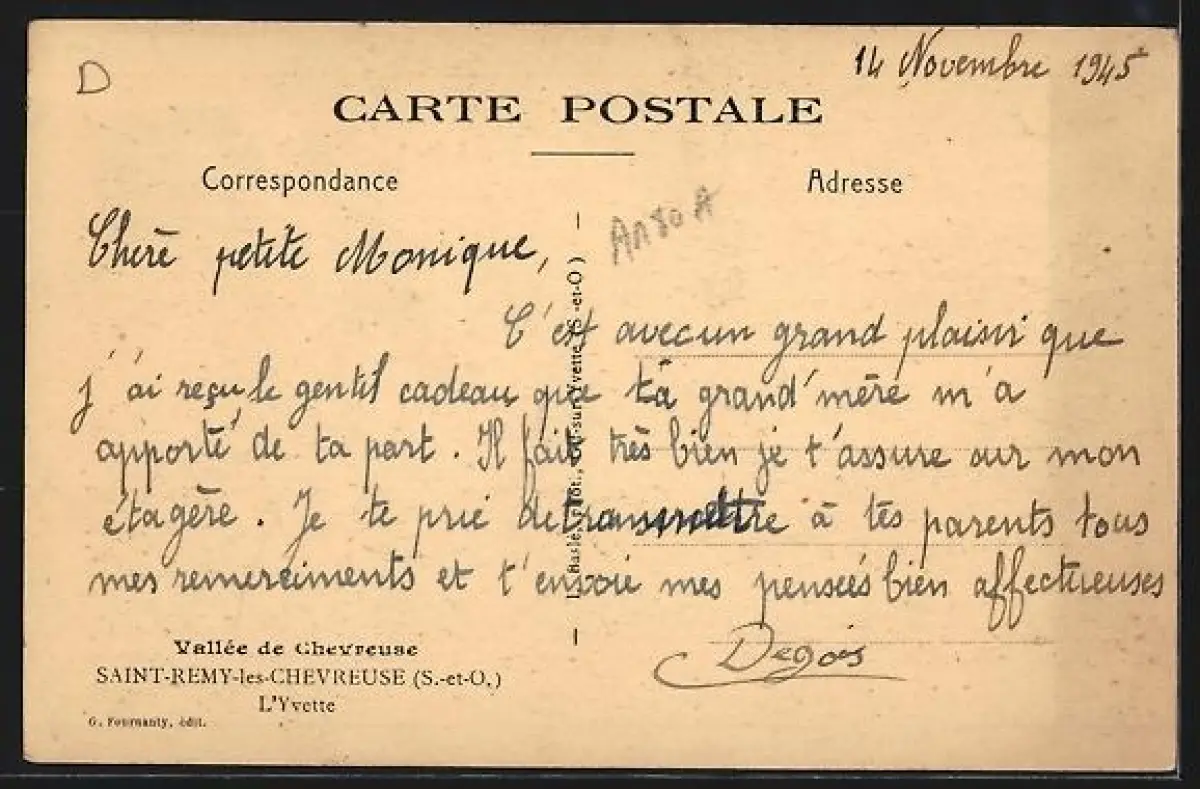 D
14 Novembre 1945
CARTE POSTALE
Correspondance
Adresse
Chère petite Monique,
C'est avec un grand plaisir que
j'ai reçu le gentil cadeau que ta grand'mère m'a
apporté de ta part. Il fait très bien je t'assure sur mon
étagère. Je te prie de transmettre à tes parents tous
mes remerciments et t'envoie mes pensées bien affectueuses
Vallée de Chevreuse
SAINT-REMY-les-CHEVREUSE (S.-et-O.)
L'Yvette
G. Fournanty, édit.
phot., -sur-Yvette (S.-et-O)